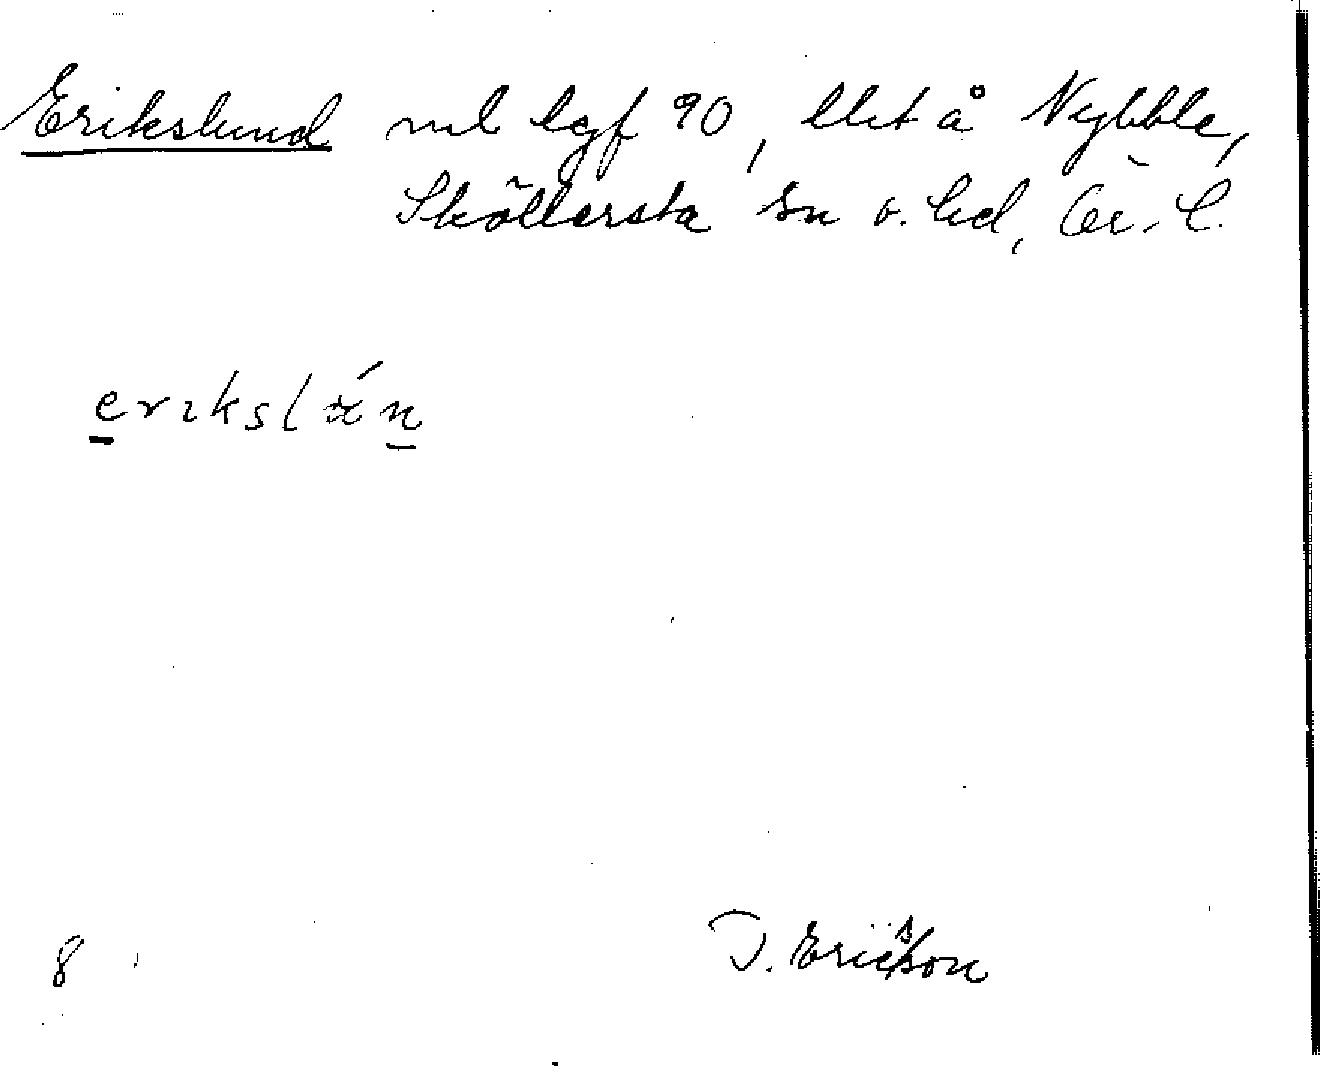 Erikslund nb lgf 90, Ubt å Nybble,
Sköllersta sn o. hd, Ör. l.
erikslán
8 J. Ericsson